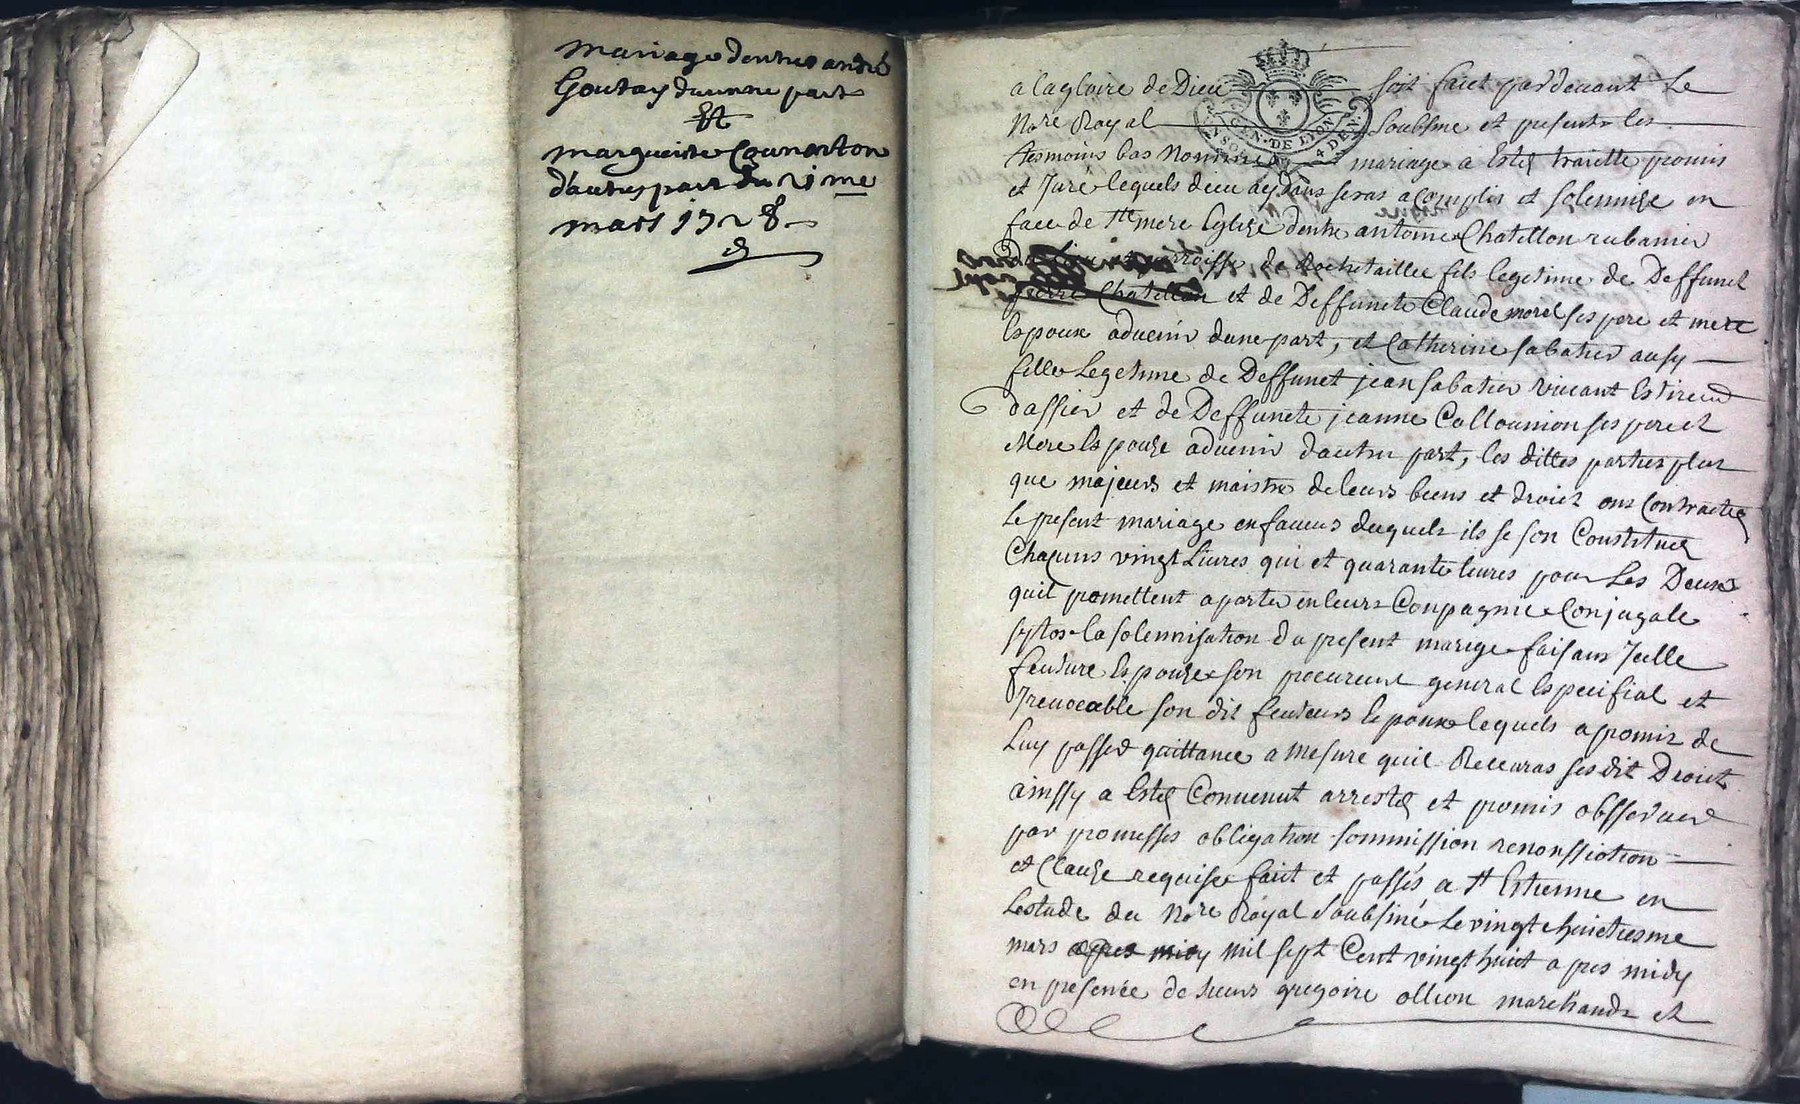 mariage dentre andré
Goutay dunne part
Et
marguerite Couranton
d'autre part du 21 me
mars 1728
a la gloire de Dieu soit faict pardevant Le
No.re Royal soubsine et presents les
tesmoins bas nommes mariage a Esté traitte promis
et Juré lequels dieu aydans seras acomplis et solennise en
face de S.te mere Eglize dentre antoine Chatellon rubanier
parroisse de Rochetaillee fils legetime de Deffunct
pierre Chatellon et de Deffuncte Claude morel ses pere et mere
Espoux advenir dune part, et Catherine sabatier ausy
fille Legetime de Deffunct jean sabatier vivant Estireur
dassier et de Deffuncte jeanne Colloumion ses pere et
Mere Espouze advenir dautre part, les dittes parties plus
que majeurs et maistre de leurs biens et droict ont Contracté
Le present mariage en faveur duquels ils se son Constitué
Chacuns vingt Livres qui et quarante livres pour Les Deux
quil promettent aporter en leurs Conpagnie Conjugale
sytos la solennisation du present mariage faisans Jcelle
feuture Espouze son procureur general Especifial et
Jrevocable son dit feuteurs Espoux lequels a promis de
Luy passer quittance a mesure quil Recevras ses dit Droict
ainssy a Esté Convenut arresté et promis obsserver
par promesses obligation sommission renonssiation
et Clauze requise faict et passés a St Estienne en
Lestude du No.re Royal soubsiné le vingt huictiesme
mars mil sept Cent vingt huict apres midy
en presence de sieurs gregoire ollion marchands et